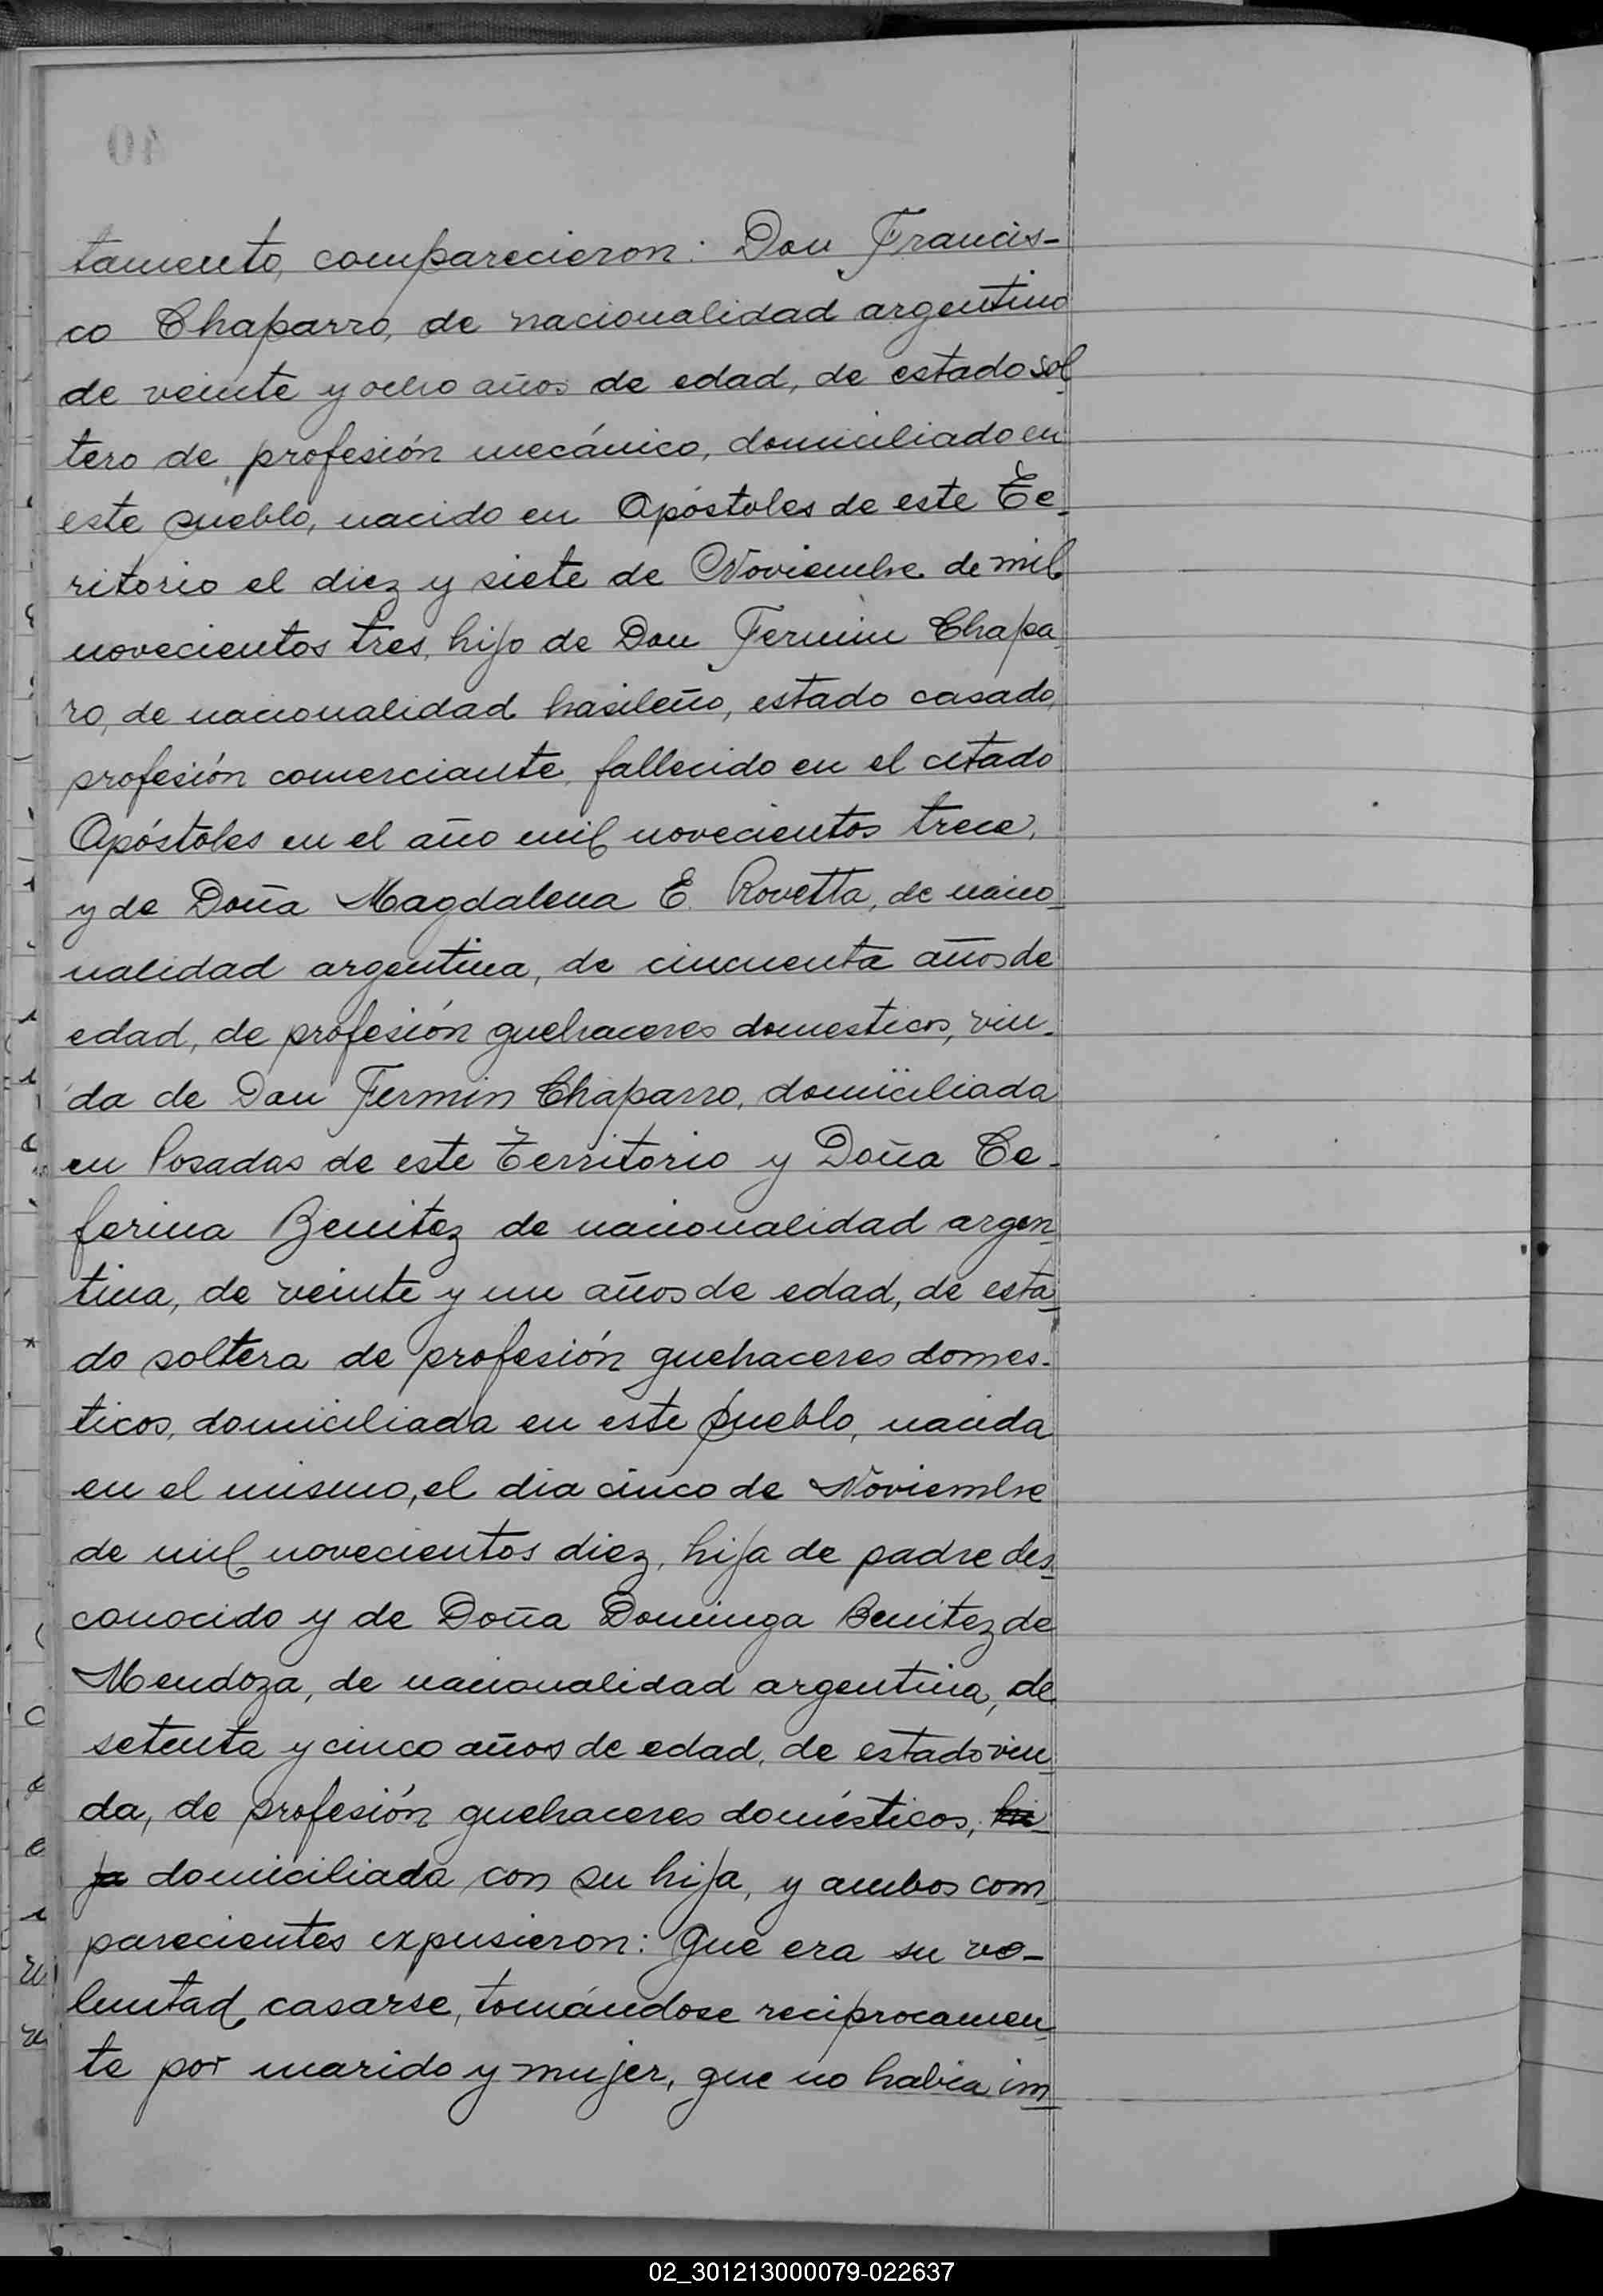 40
tamento, comparecieron: Don Francis-
co Chaparro, de nacionalidad argentino
de veinte y ocho años de edad, de estado sol
tero de profesión mecánico, domiciliado en
este pueblo, nacido en Apóstoles de este Te-
ritorio el diez y siete de Noviembre de mil
novecientos tres, hijo de Don Fermin Chapa
ro, de nacionalidad brasileño, estado casado,
profesión comerciante, fallecido en el citado
Apóstoles en el año mil novecientos trece,
y de Doña Magdalena E. Rovetta, de nacio-
nalidad argentina, de cincuenta años de
edad, de profesión quehaceres domesticos, viu-
da de Don Fermin Chaparro, domiciliada
en Posadas de este Territorio y Doña Ce-
ferina Benitez de nacionalidad argen-
tina, de veinte y un años de edad, de esta-
do soltera de profesión quehaceres domes-
ticos, domiciliada en este pueblo, nacida
en el mismo, el dia cinco de Noviembre
de mil novecientos diez, hija de padre des-
conocido y de Doña Dominga Benitez de
Mendoza, de nacionalidad argentina, de
setenta y cinco años de edad, de estado viu
da, de profesión quehaceres domésticos, hi-
ja domiciliada con su hija, y ambos com-
parecientes expusieron: Que era su vo-
luntad casarse, tomándose reciprocamen-
te por marido y mujer, que no habia im-
02_301213000079-022637